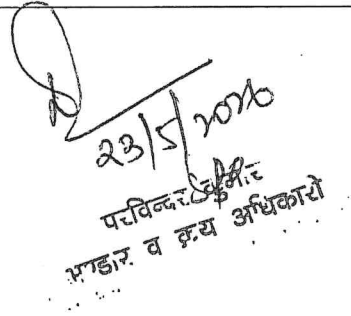 23/5/2026
परविन्दर कुमार
भण्डार व क्रय अधिकारी